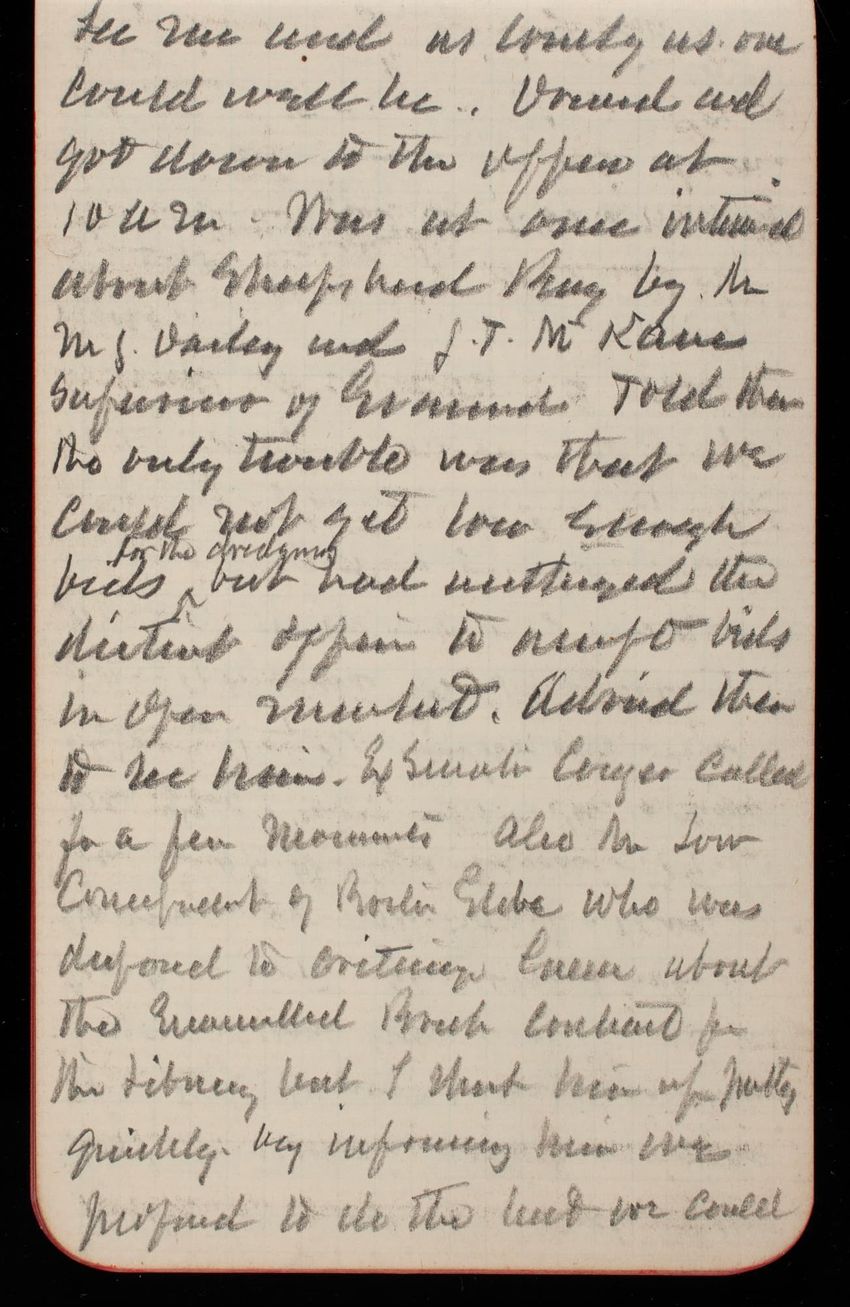 see me and as lonely as one
could well be. Dressed and
got down to the office at
10 am. Was at once interviewed
about Sheepshead Bay by Mr
M J. Dailey and J. T. McKane
Supervisor of Gravesend. Told them
the only trouble was that we
could not get low enough
for the dredging
bids but had authorized the
district officer to accept bids
in open market. Advised them
to see him. Ex Senator Conger called
for a few moments Also Mr Low
Correspondent of Boston Globe who was
disposed to criticise Green about
the Enamelled Brick contract for
the Library but I shut him up pretty
quickly by informing him we
proposed to do the best we could